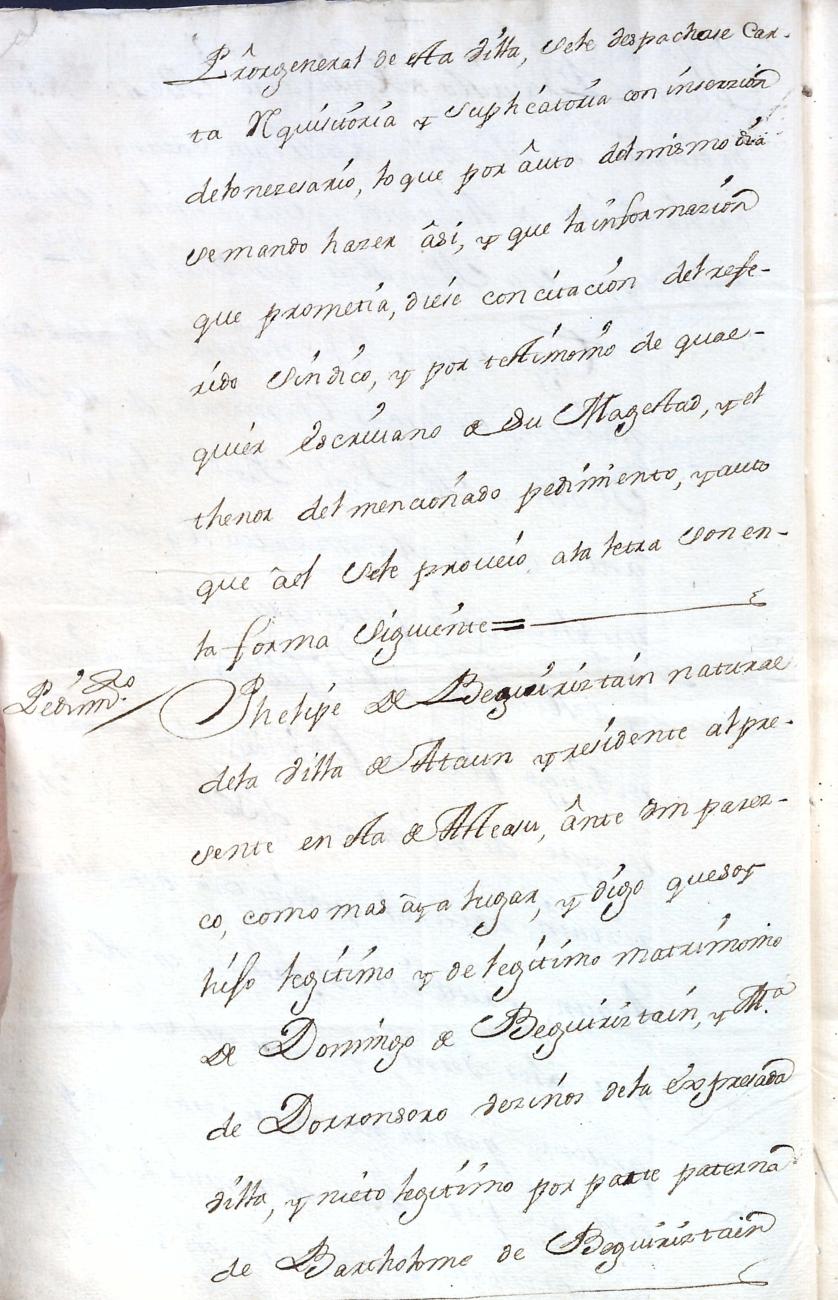 Pr̂orgeneral de esta villa, sele despachase Car-
ta Rquisitoria y suplicatoria con inserzion
delo nezesario, lo que por âuto del mismo dia
se mando hazer âsi, y que la informazion
que prometia, diese con citacion del refe-
rido Sindico, y por testimonio de qual-
quier Escriuano de Su Magestad, y el
thenor del mencionado pedimiento, y auto
que âel sele proueio ala letra son en-
la forma siguiente =
Pedimto. / Phelipe de Beguiriztain natural
dela villa de Ataun y residente al pre-
sente en esta de Alleasu, ânte Vm parez-
co, como mas âya lugar, y digo que soy
hijo legitimo y de legitimo matrimonio
de Domingo de Beguiriztain, y Ma.
de Dorronsoro vezinos dela expresada
villa, y nieto legitimo por parte paterna
de Bartholome de Beguiriztain